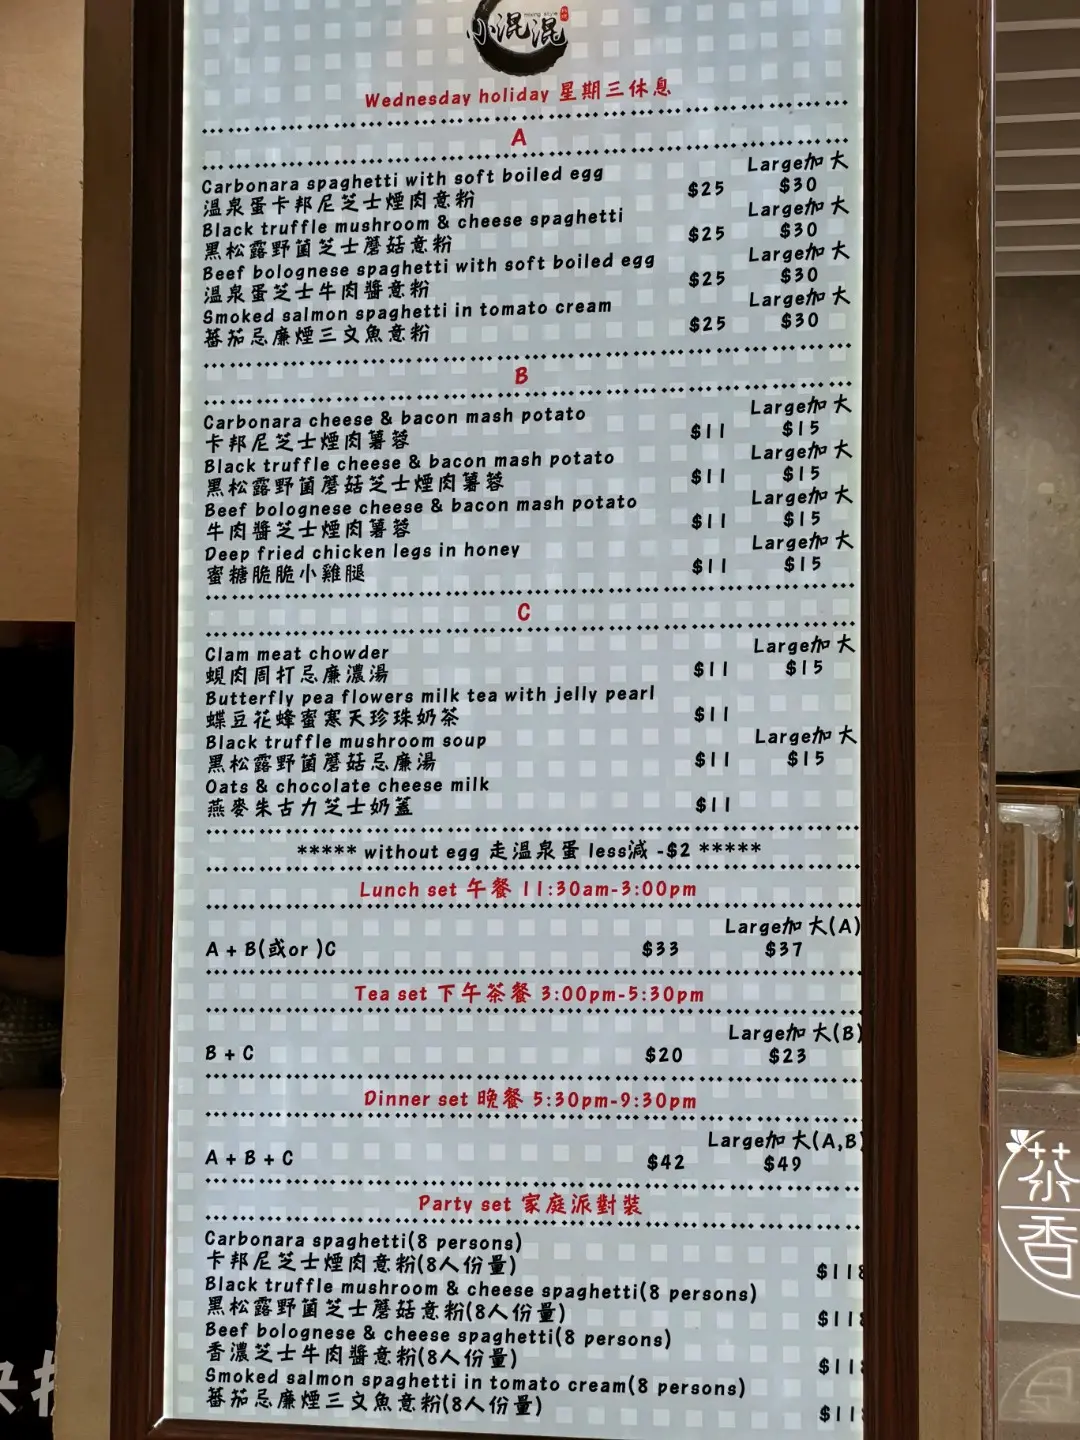 小混混
Wednesday holiday 星期三休息
A
Large加大
Carbonara spaghetti with soft boiled egg $25 $30
溫泉蛋卡邦尼芝士煙肉意粉
Large加大
Black truffle mushroom & cheese spaghetti $25 $30
黑松露野菌芝士蘑菇意粉
Large加大
Beef bolognese spaghetti with soft boiled egg $25 $30
溫泉蛋芝士牛肉醬意粉
Large加大
Smoked salmon spaghetti in tomato cream $25 $30
蕃茄忌廉煙三文魚意粉
B
Large加大
Carbonara cheese & bacon mash potato $11 $15
卡邦尼芝士煙肉薯蓉
Large加大
Black truffle cheese & bacon mash potato $11 $15
黑松露野菌蘑菇芝士煙肉薯蓉
Large加大
Beef bolognese cheese & bacon mash potato $11 $15
牛肉醬芝士煙肉薯蓉
Large加大
Deep fried chicken legs in honey $11 $15
蜜糖脆脆小雞腿
C
Large加大
Clam meat chowder $11 $15
蜆肉周打忌廉濃湯
Butterfly pea flowers milk tea with jelly pearl $11
蝶豆花蜂蜜寒天珍珠奶茶
Large加大
Black truffle mushroom soup $11 $15
黑松露野菌蘑菇忌廉湯
Oats & chocolate cheese milk $11
燕麥朱古力芝士奶蓋
***** without egg 走溫泉蛋 less減 -$2 *****
Lunch set 午餐 11:30am-3:00pm
Large加大(A)
A + B(或or )C $33 $37
Tea set 下午茶餐 3:00pm-5:30pm
Large加大(B)
B + C $20 $23
Dinner set 晚餐 5:30pm-9:30pm
Large加大(A,B)
A + B + C $42 $49
Party set 家庭派對裝
Carbonara spaghetti(8 persons)
卡邦尼芝士煙肉意粉(8人份量) $118
Black truffle mushroom & cheese spaghetti(8 persons)
黑松露野菌芝士蘑菇意粉(8人份量) $118
Beef bolognese & cheese spaghetti(8 persons)
香濃芝士牛肉醬意粉(8人份量) $118
Smoked salmon spaghetti in tomato cream(8 persons)
蕃茄忌廉煙三文魚意粉(8人份量) $118
茶
香